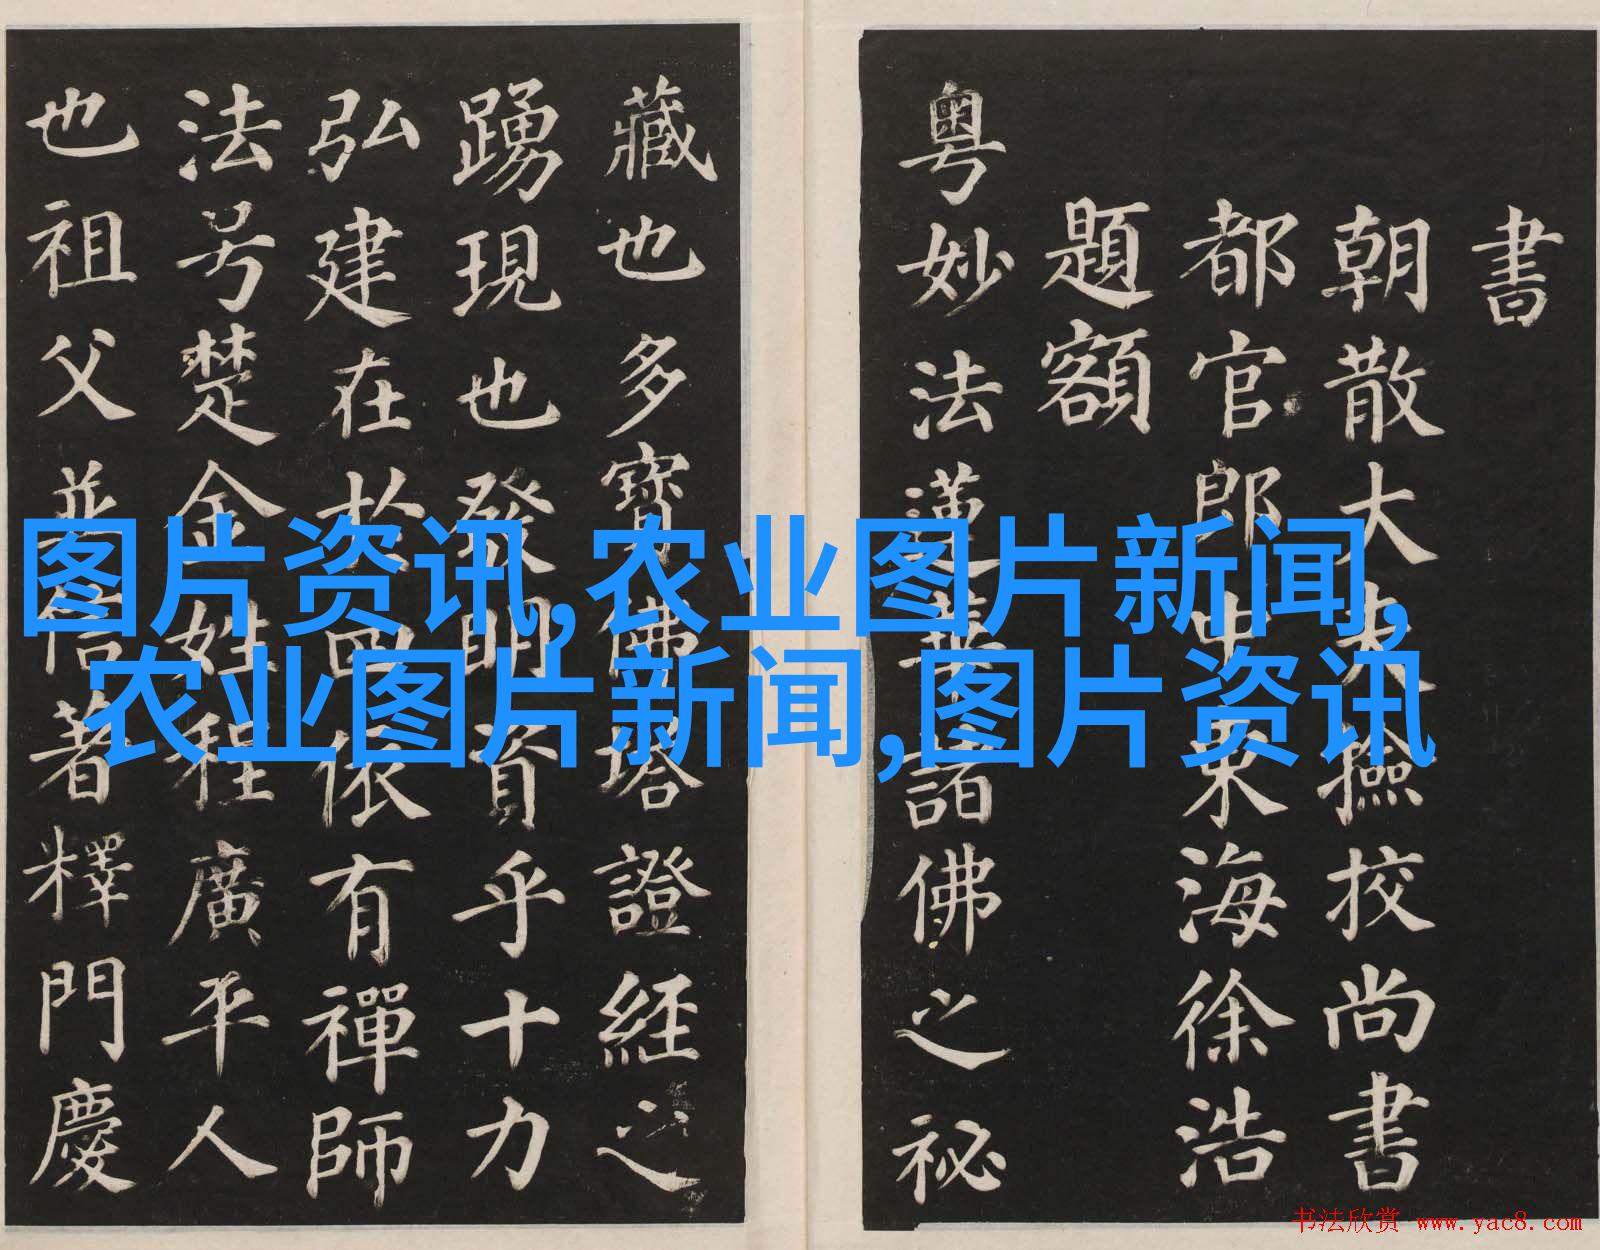 書
朝散大夫撿挍尚書
都官郎中東海徐浩
題額
粵妙法蓮華諸佛之祕
藏也多寶佛塔證經之
踴現也發明資乎十力
弘建在於四依有禪師
法号楚金姓程廣平人
也祖父並信著釋門慶
图片资讯,农业图片新闻,
农业图片新闻,图片资讯
书法欣赏 www.yac8.com